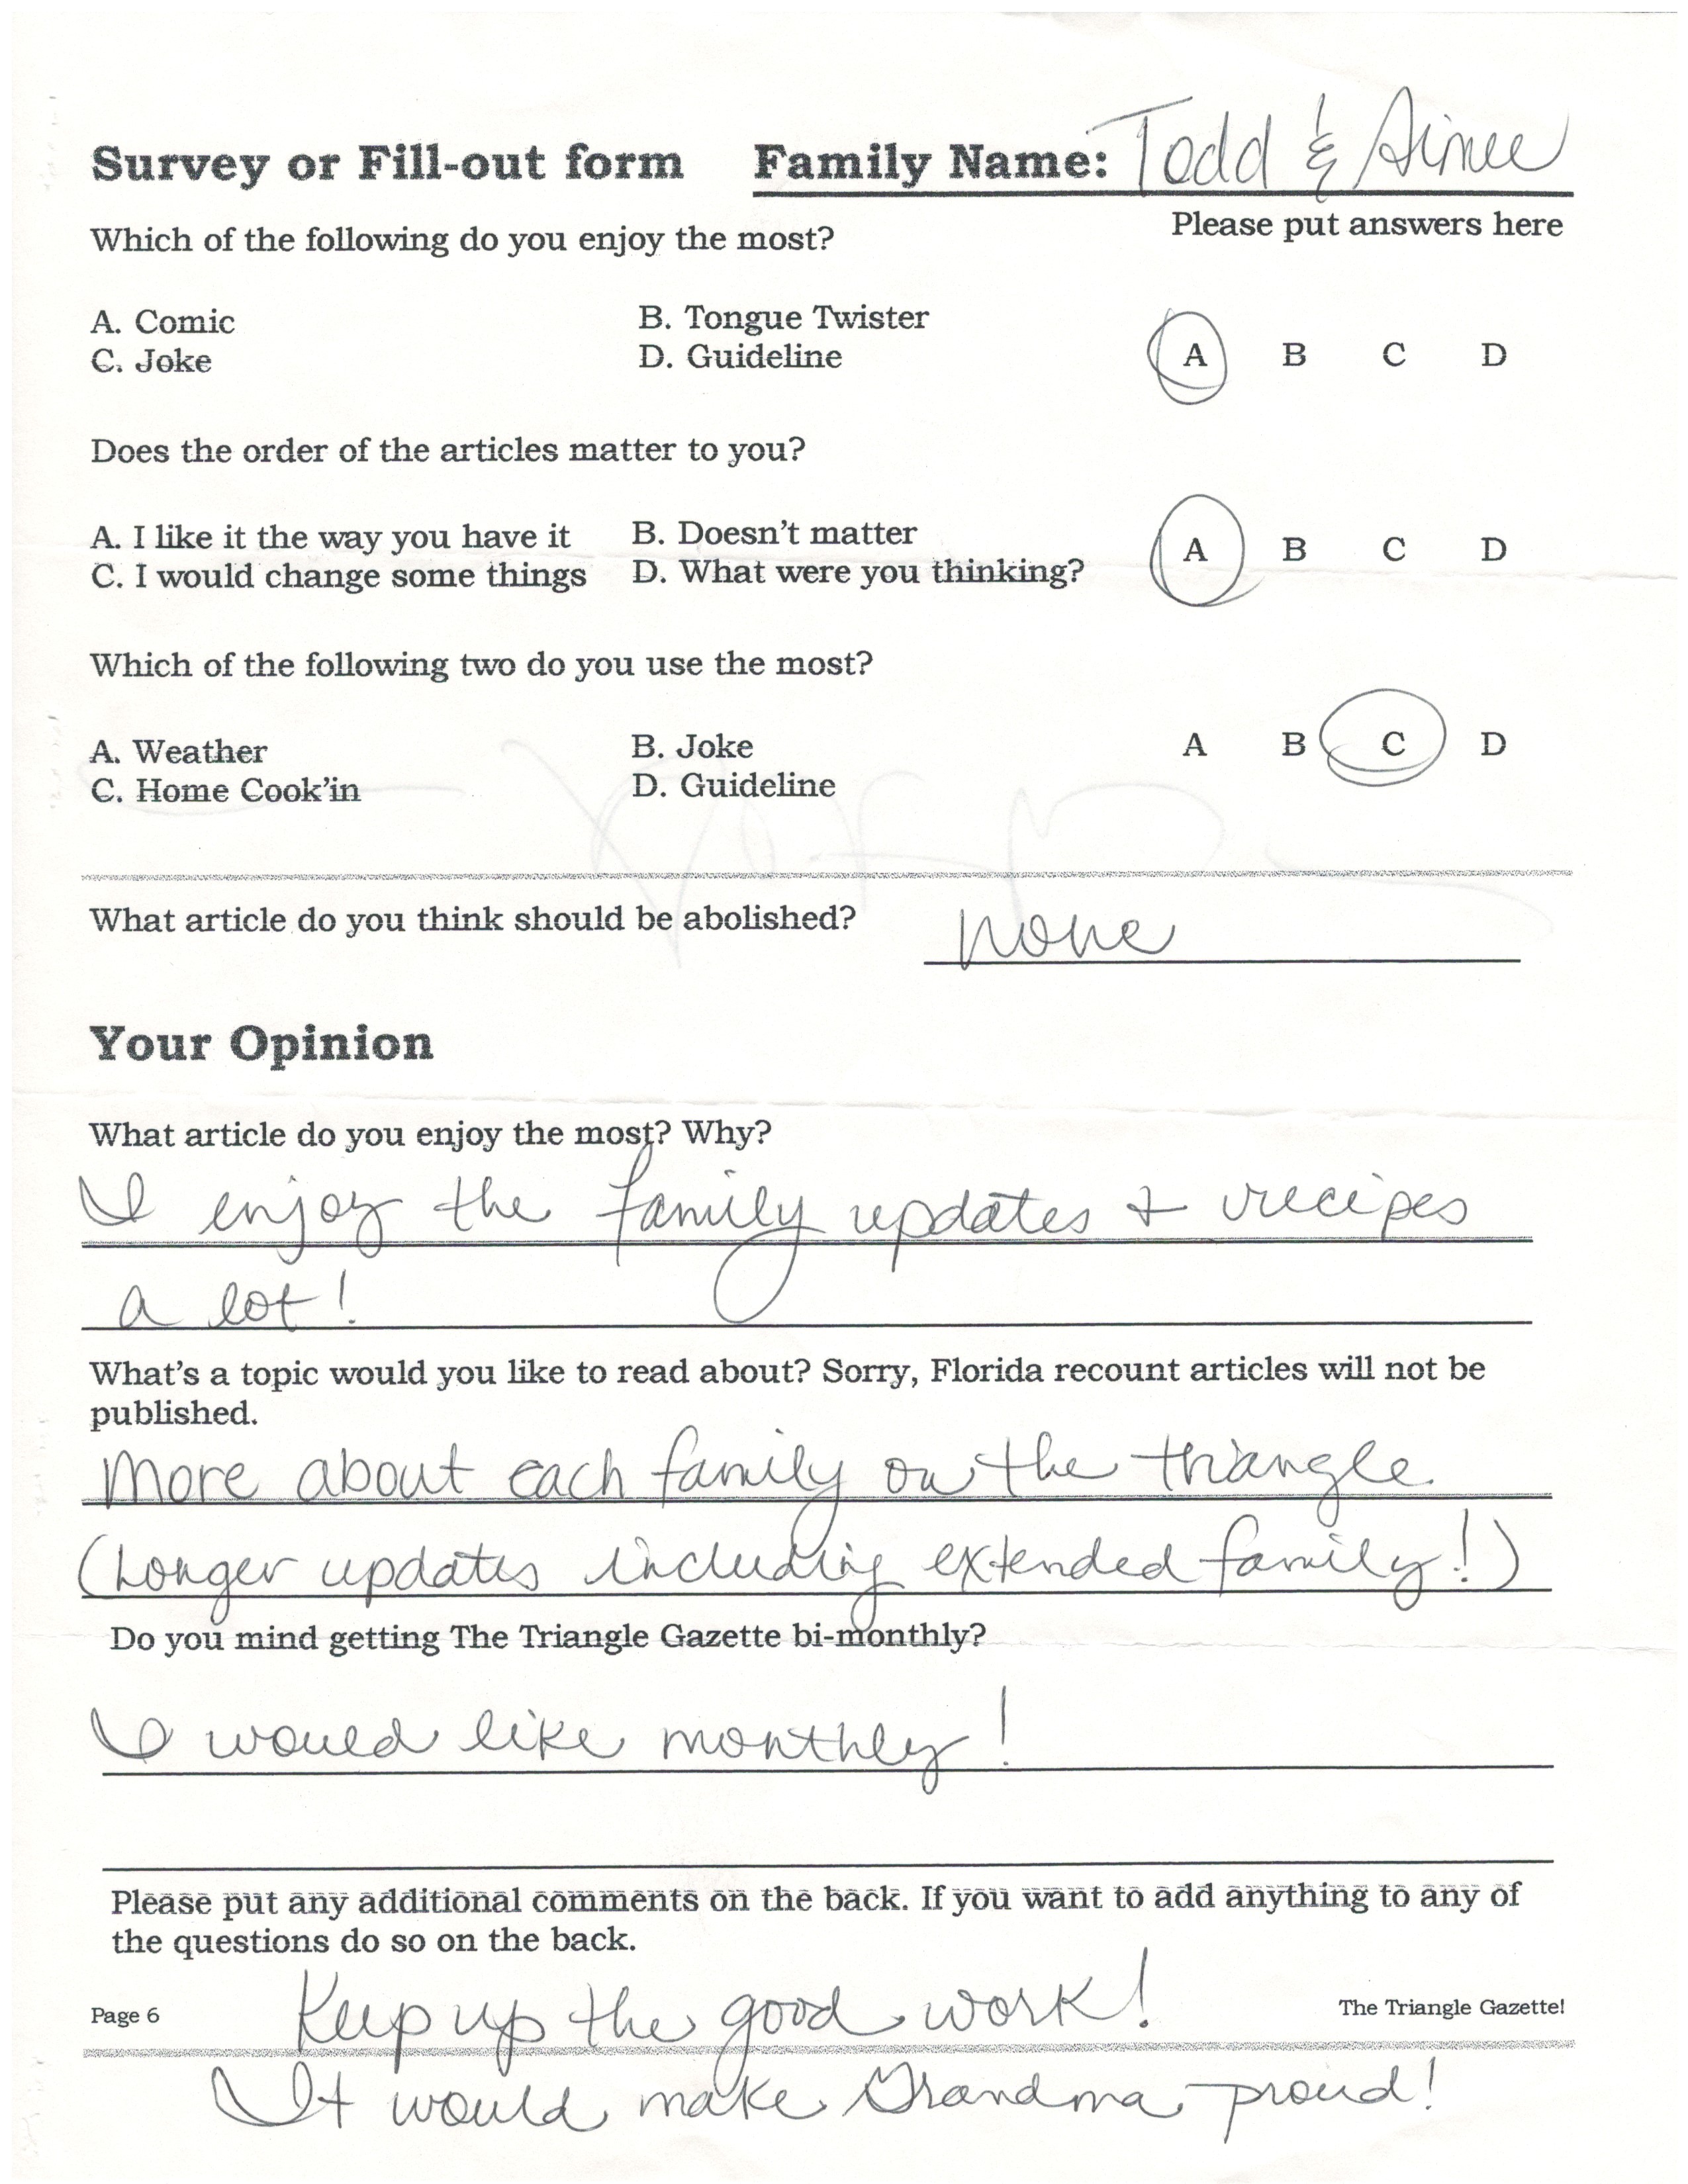 Survey or Fill-out form Family Name: Todd & Aimee
Please put answers here
Which of the following do you enjoy the most?
A. Comic B. Tongue Twister
C. Joke D. Guideline
A B C D
Does the order of the articles matter to you?
A. I like it the way you have it B. Doesn't matter
C. I would change some things D. What were you thinking?
A B C D
Which of the following two do you use the most?
A. Weather B. Joke
C. Home Cook'in D. Guideline
A B C D
What article do you think should be abolished? none
Your Opinion
What article do you enjoy the most? Why?
I enjoy the family updates & recipes
a lot!
What's a topic would you like to read about? Sorry, Florida recount articles will not be
published.
More about each family on the triangle.
(Longer updates including extended family!)
Do you mind getting The Triangle Gazette bi-monthly?
I would like monthly!
Please put any additional comments on the back. If you want to add anything to any of
the questions do so on the back.
Keep up the good work!
Page 6 The Triangle Gazette!
It would make Grandma proud!